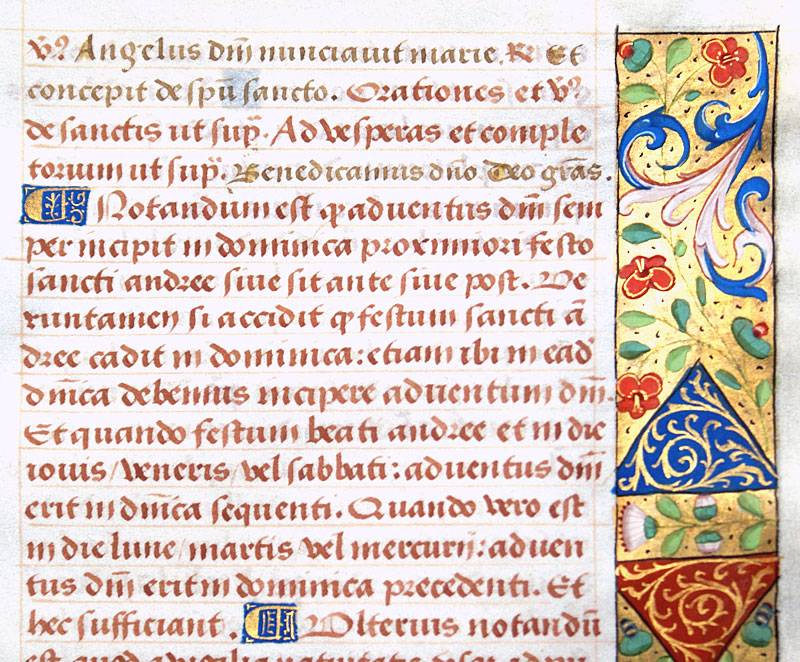 v̄ꝰ Angelus dn̄i nunciauit marie. ℞ Et
concepit de spū sancto. Orationes et v̄ꝰ
de sanctis ut sup̄. Ad vesperas et comple
torium ut sup̄. Benedicamus dn̄o. Deo gr̄as.
Notandum est ꝙ aduentus dn̄i sem
per incipit in dominica proximiori festo
sancti andree siue sit ante siue post. Ve
runtamen si accidit ꝙ festum sancti ā
dree cadit in dominica: etiam ibi in eadē
dn̄ica debemus incipere aduentum dn̄i.
Et quando festum beati andree et in die
iouis/ veneris/ vel sabbati: aduentus dn̄i
erit in dn̄ica sequenti. Quando vero est
in die lune/ martis vel mercurij: aduen
tus dn̄i erit in dominica precedenti. Et
hec sufficiant. Vlterius notandū
est quod a vigilia natiuitatis